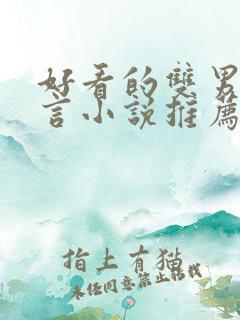 好看的雙男
言小説推薦
指上有猫
未经同意禁止转载